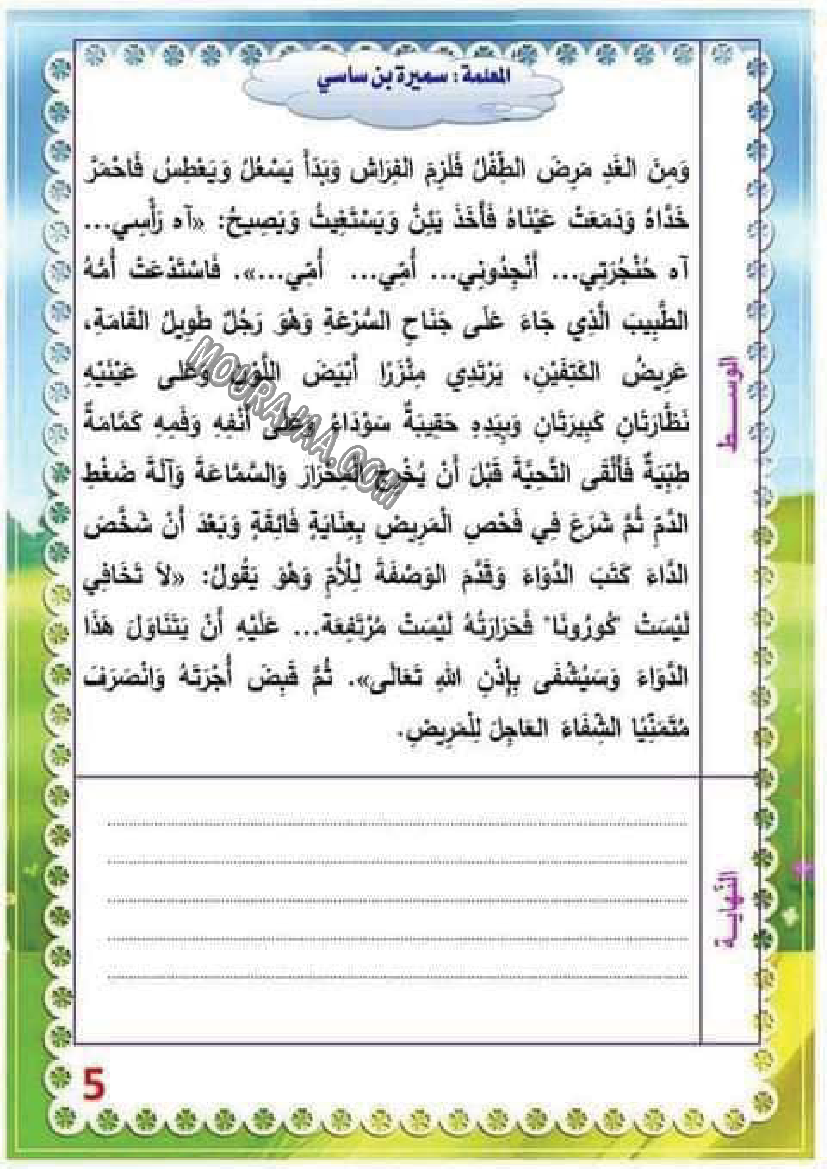 المعلمة : سميرة بن ساسي
وَمِنَ الغَدِ مَرِضَ الطِّفْلُ فَلَزِمَ الفِرَاشَ وَبَدَأَ يَسْعُلُ وَيَعْطِسُ فَاحْمَرَّ
خَدَّاهُ وَدَمَعَتْ عَيْنَاهُ فَأَخَذَ يَئِنُّ وَيَسْتَغِيثُ وَيَصِيحُ: «آه رَأْسِي...
آه حُنْجُرَتِي... أَنْجِدُونِي... أُمِّي... أُمِّي...». فَاسْتَدْعَتْ أُمُّهُ
الطَّبِيبَ الَّذِي جَاءَ عَلَى جَنَاحِ السُّرْعَةِ وَهْوَ رَجُلٌ طَوِيلُ القَامَةِ،
عَرِيضُ الكَتِفَيْنِ، يَرْتَدِي مِئْزَرًا أَبْيَضَ اللَّوْنِ وَعَلَى عَيْنَيْهِ
نَظَّارَتَانِ كَبِيرَتَانِ وَبِيَدِهِ حَقِيبَةٌ سَوْدَاءُ وَعَلَى أَنْفِهِ وَفَمِهِ كَمَّامَةٌ
طِبِّيَةٌ فَأَلْقَى التَّحِيَّةَ قَبْلَ أَنْ يُخْرِجَ المِحْرَارَ وَالسَّمَّاعَةَ وَآلَةَ ضَغْطِ
الدَّمِّ ثُمَّ شَرَعَ فِي فَحْصِ الْمَرِيضِ بِعِنَايَةٍ فَائِقَةٍ وَبَعْدَ أَنْ شَخَّصَ
الدَّاءَ كَتَبَ الدَّوَاءَ وَقَدَّمَ الوَصْفَةَ لِلْأُمِّ وَهْوَ يَقُولُ: «لاَ تَخَافِي
لَيْسَتْ "كُورُونَا" فَحَرَارَتُهُ لَيْسَتْ مُرْتَفِعَة... عَلَيْهِ أَنْ يَتَنَاوَلَ هَذَا
الدَّوَاءَ وَسَيُشْفَى بِإِذْنِ اللهِ تَعَالَى». ثُمَّ قَبِضَ أُجْرَتَهُ وَانْصَرَفَ
مُتَمَنِّيًا الشِّفَاءَ العَاجِلَ لِلْمَرِيضِ.
الوسـط
النهايـة
MOURAJAA.COM
5